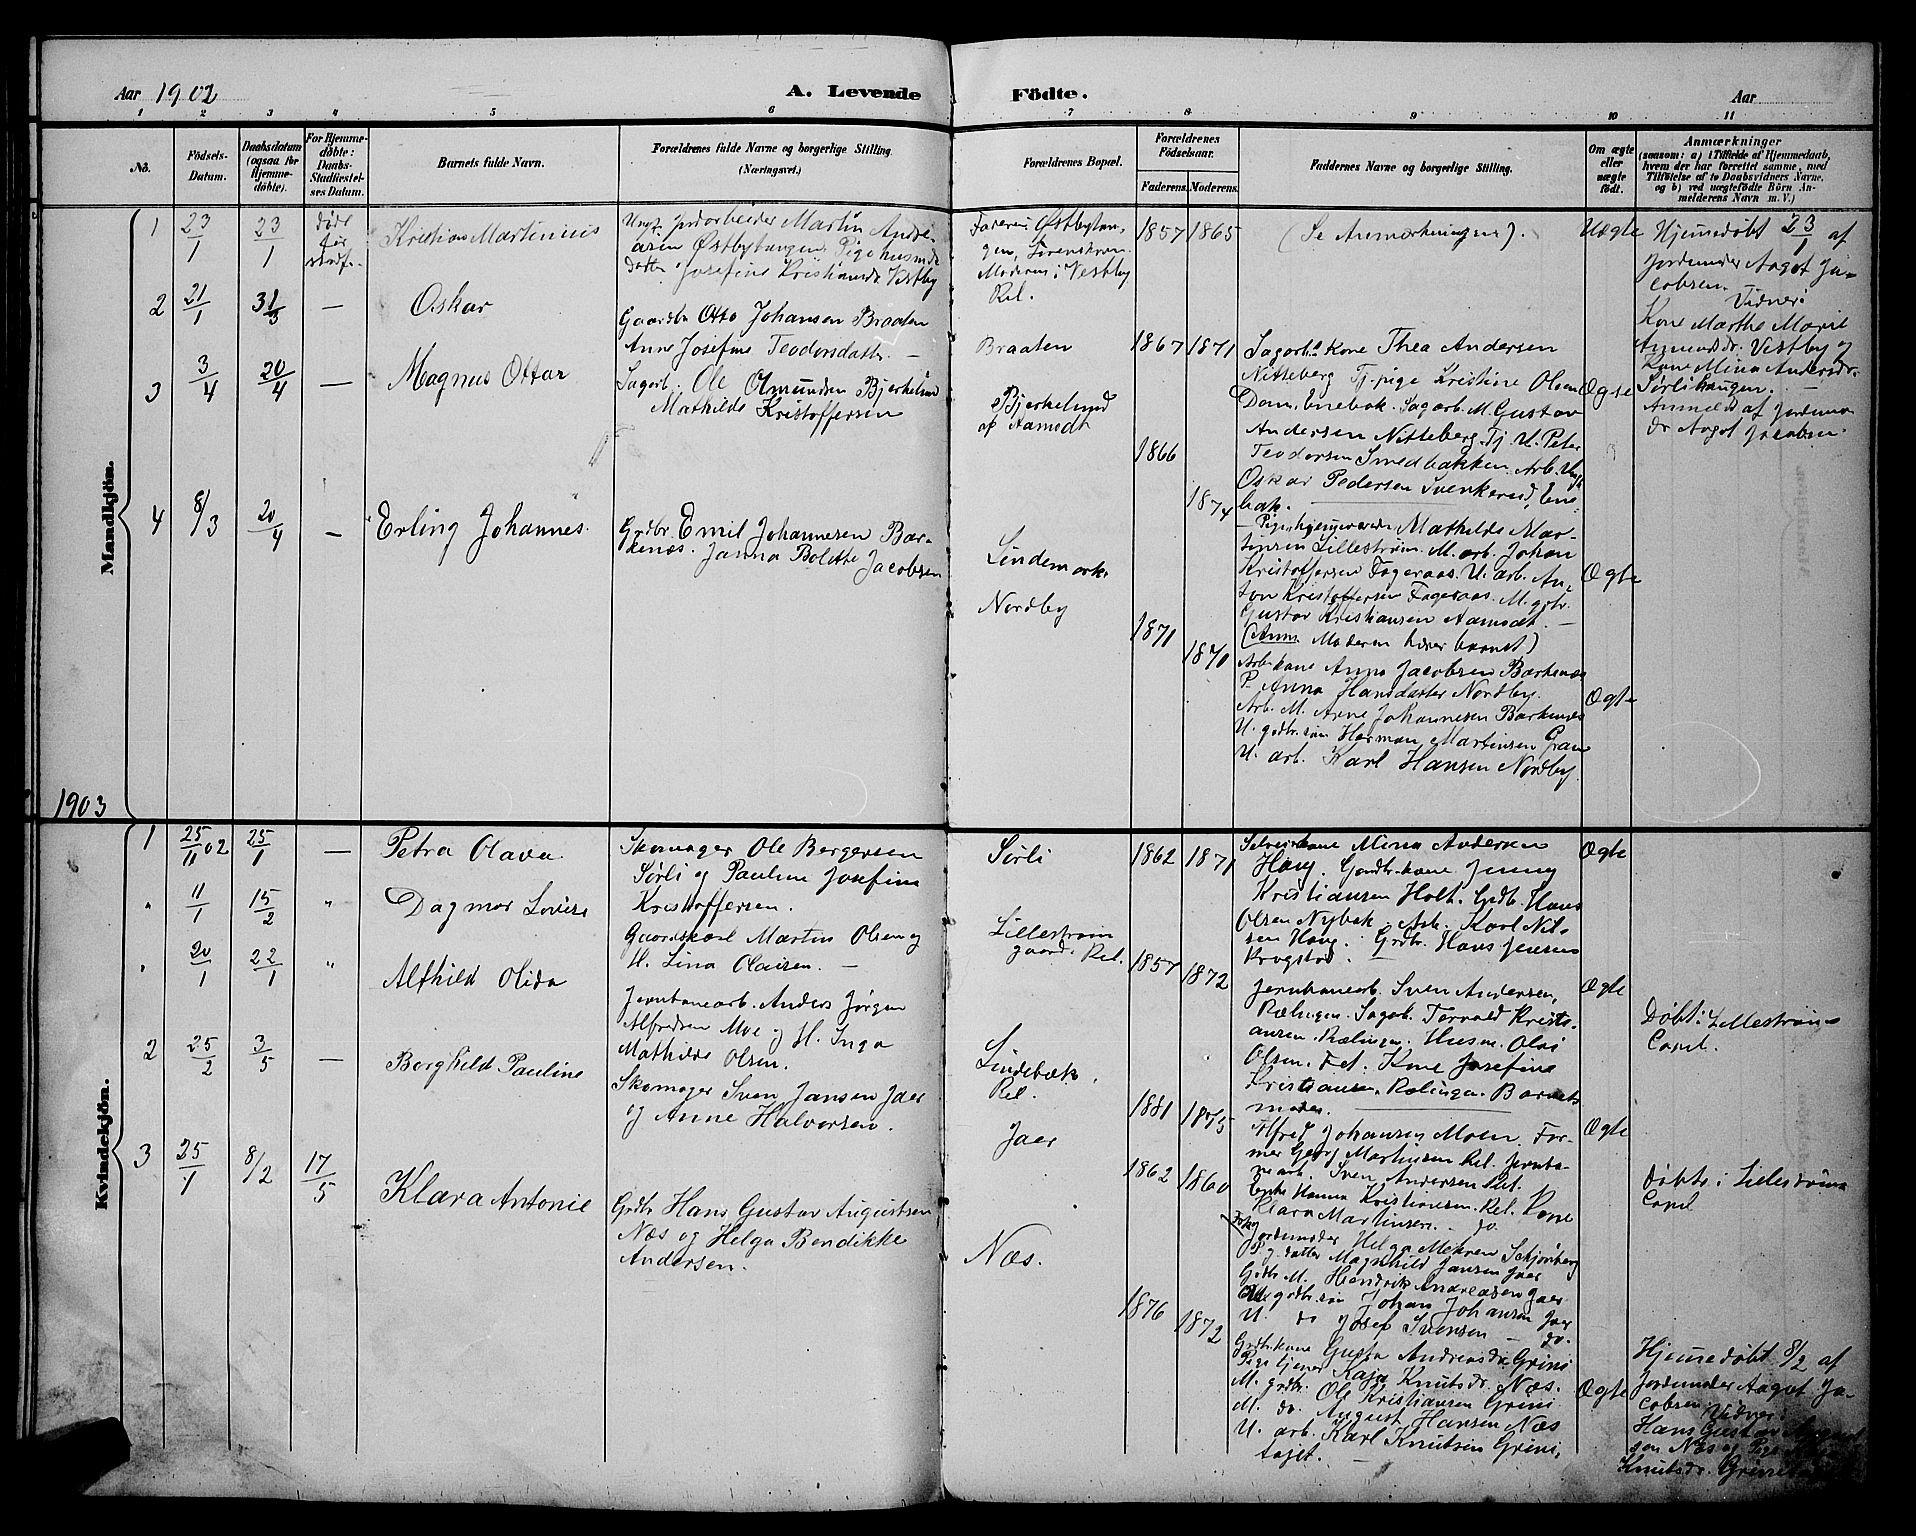 Aar 1902
A. Levende
Födte.
Aar
1 2 3 4 5 6 7 8 9 10 11
No.
Födsels-
Datum.
Daabsdatum
(ogsaa for
Hjemme-
döbte).
For Hjemme-
döbte:
Daabs-
Stadfæstel-
ses Datum.
Barnets fulde Navn.
Forældrenes fulde Navne og borgerlige Stilling.
(Næringsvei.)
Forældrenes Bopæl.
Forældrenes
Födselsaar.
Faderens. Moderens.
Faddernes Navne og borgerlige Stilling.
Om ægte
eller
uægte
födt.
Anmærkninger
(saasom: a) i Tilfælde af Hjemmedaab,
hvem der har forrettet samme, med
Tilföielse af to Daabsvidners Navne,
og b) ved uægtefödte Börn An-
melderens Navn m. V.)
Mandkjön.
1 23/1 23/1 døde
før
stadf.
Kristian Martinius
Ungk. Jordarbeider Martin Andre-
asen Østbytangen, Pige husmds
datter Josefine Kristiansdr Vestby
Faderen: Østbytan-
gen, Lørenskoven
Moderen i Vestby
Rel.
1857 1865
(Se Anmærkningen).
Uægte
Hjemedøbt 23/1 af
Jordemoder Aagot Ja-
cobsen. Vidner:
Kone Marthe Marie
Amundsdr. Vestby og
Kone Mina Andersdr.
Sørlihaugen.
Anmeldt af Jordemo-
der Aagot Jacobsen.
2 21/1 31/3 —
Oskar
Gaardbr Otto Johansen Braaten
Anne Josefine Teodorsdatter —
Braaten
1867 1871
Sagarb. Kone Thea Andersen
Nitteberg Tj. pige Kristine Olsen
Dam, Enebak. Sagarb. M. Gustav
Andersen Nitteberg. Tj. U. Peter
Teodorsen Smedbakken. Arb. Ungk
Oskar Pedersen Svenkerud, Ene
bak.
Ægte
3 3/4 20/4 —
Magnus Ottar
Sagarb. Ole Osmundsen Bjerkelund
Mathilde Kristoffersen
Bjerkelund
af Aamodt
1866
1874
— Pige hjemmeværende Mathilde Mar-
tinsen Lillestrøm. M. arb. Johan
Kristoffersen Fageraas. U. arb. An-
ton Kristoffersen Fageraas. M. gdbr.
Gustav Kristiansen Aamodt. —
(Anm. Moderen bærer barnet)
Ægte
4 8/3 20/4 —
Erling Johannes.
Grdbr. Emil Johannesen Bar-
kenæs. Janna Bolette Jacobsen
Lindemark.
Nordby
1871
1870
Arb. kone Anna Jacobsen Barkenæs
P. Anna Hansdatter Nordby.
Arb. M. Arne Johannesen Barkenæs
U. gdbr. søn Herman Martinsen Gran
U. arb. Karl Hansen Nordby.
Ægte
1903
Kvindekjön.
1 25/11 02 25/1 —
Petra Olava.
Skomager Ole Bergersen
Sørli og Pauline Josefine
Kristoffersen.
Sørli
1862 1871
Kone Mina Andersen
Haug. Gardbr. kone Jenny
Kristiansen Holt. Grdb. Hans
Olsen Nybak. Arb. Karl Nil-
sen Haug. Grdbr. Hans Jensen
Krogstad.
Ægte
" 11/1 15/2 "
Dagmar Lovise
Gaardskarl Martin Olsen og
H. Lina Olaisen. —
Lillestrøm
gaard. Rel.
1857 1872
Jernbanearb. Sven Andersen,
Rælingen. Sagarb. Torvald Kristi-
ansen. Rælingen. Husm. Olai
Olsen. Fet. Kone Josefine
Kristiansen, Rælingen. Barnets
moder.
Ægte
Døbt i Lillestrøms
Capel.
" 20/1 22/1 "
Alfhild Olida
Jernbanearb. Anders Jørgen
Alfredsen Moe og H. Inga
Mathilde Olsen.
Lindebæk.
Rel.
1881 1875
Alfred Johansen Moen. For-
mer Georg Martinsen Rel. Jernba-
nearb. Sven Andersen Rel.
Enke Hanna Kristiansen. Rel. Kone
Klara Martinsen. — do
Ægte
Døbt i Lillestrøms
Capel
2 25/2 3/5 —
Borghild Pauline
Skomager Sven Jansen Jaer
og Anne Halvorsen.
Jaer
1862 1860
Jordemoder Helga Mehren Schjønberg
P. g. datter Magnhild Jansen Jaer
Gdbr. M. Hendrik Andreasen Jaer
U. grdbr. søn Johan Johansen Jaer
U. do Josef Svensen — do.
3 25/1 8/2 17/5
Klara Antonie
Grdbr Hans Gustav Augustsen
Næs og Helga Bendikke
Andersen.
Næs.
1876 1872
Grdbr. kone Gusta Andreasdr. Grini
Pige tjener Kaja Knutsdr. Næs.
M. grdbr. Ole Kristiansen Grini
M. do. August Hansen Næs
U. arb. Karl Knutsen Grini,
Ægte
Hjemedøbt 8/2 af
Jordemoder Aagot Ja-
cobsen. Vidner:
Hans Gustav August-
sen Næs og Pige
Knutsdr. Grini